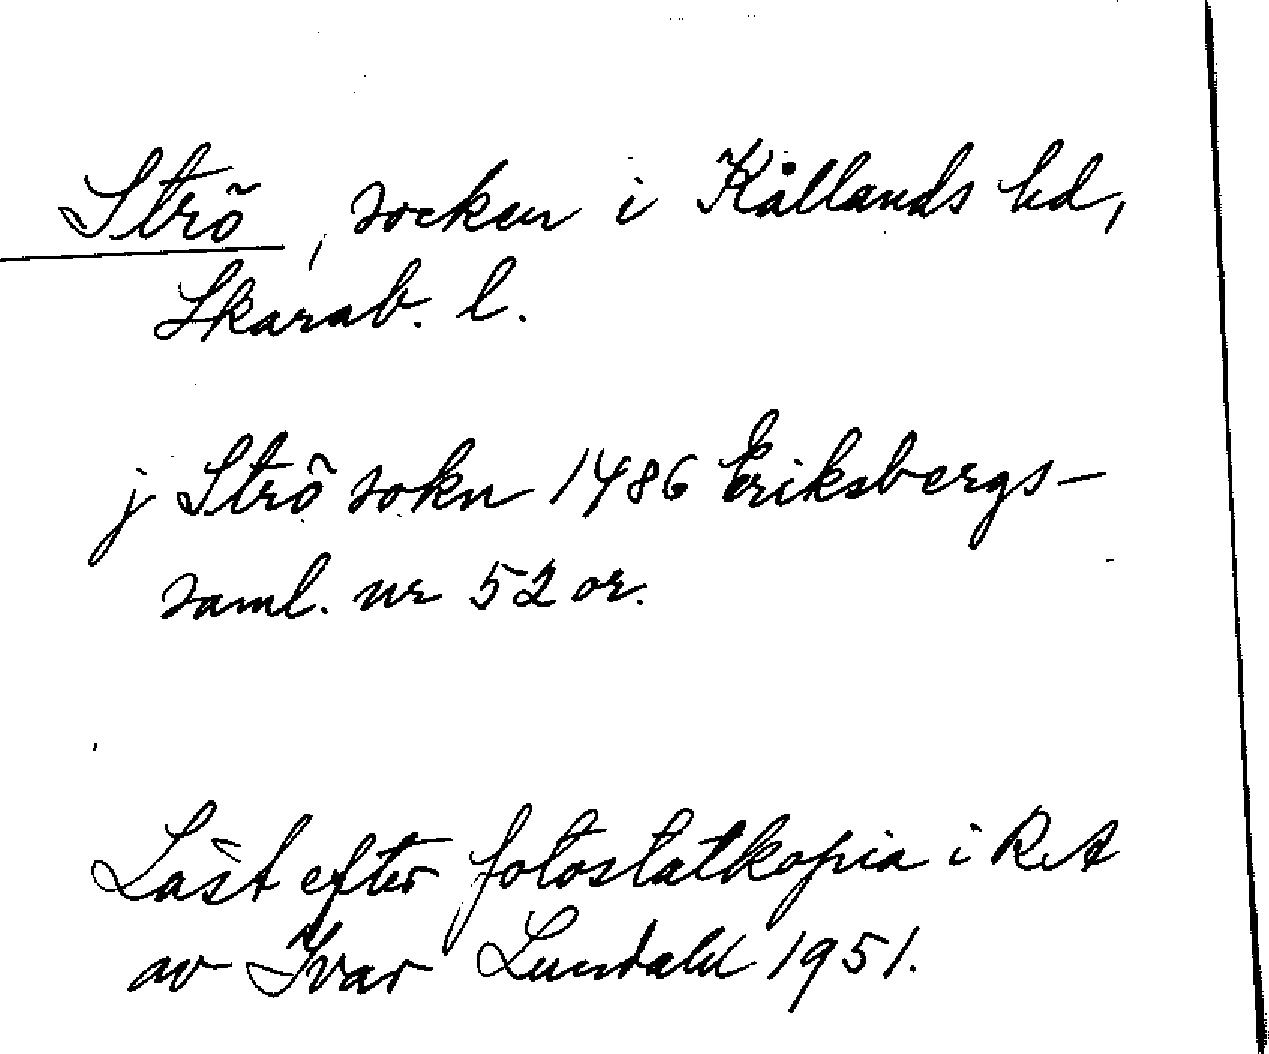 Strö, socken i Kållands hd,
Skarab. l.
j Strö sokn 1486 Eriksbergs-
saml. nr 52 or.
Läst efter fotostatkopia i RA
av Ivar Lundahl 1951.